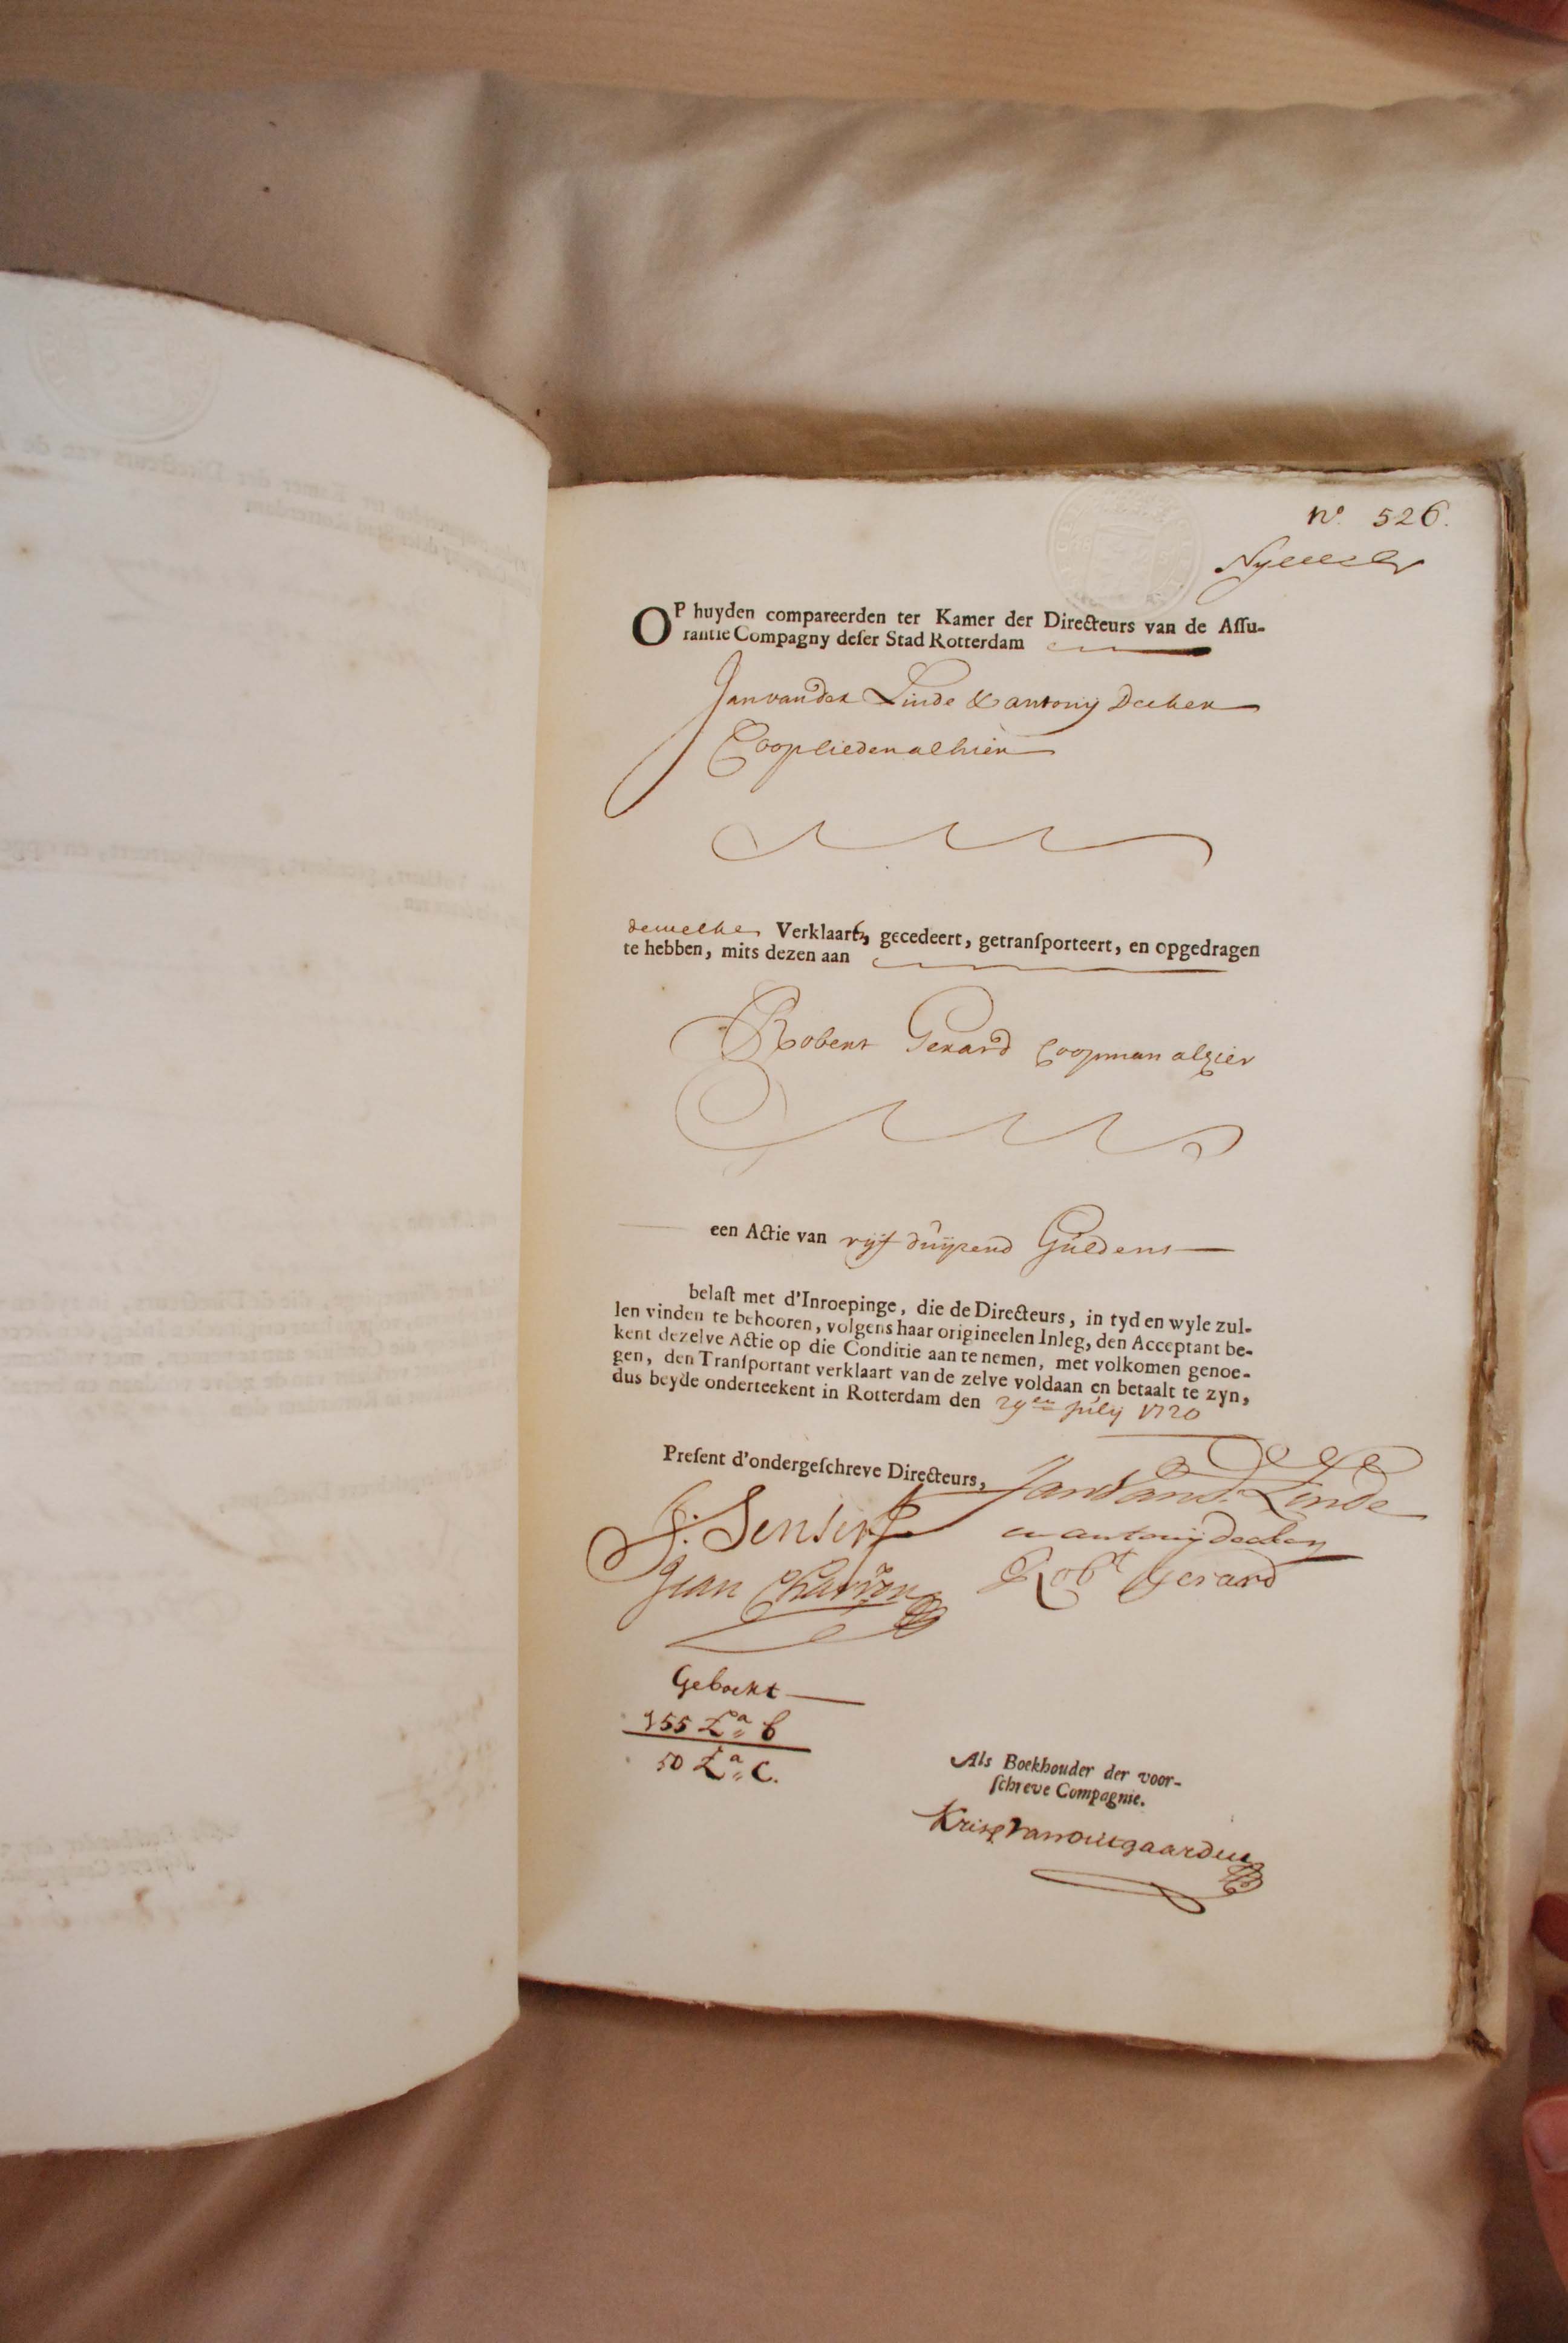 N.º 526.
OP huyden compareerden ter Kamer der Directeurs van de Assu-
rantie Compagny deser Stad Rotterdam
Jan vander Linde & antony Decker
Coopliedenalhier
dewelke Verklaart, gecedeert, getransporteert, en opgedragen
te hebben, mits dezen aan
Robert Gerard Coopman alhier
een Actie van vijf duijzend Guldens
belast met d'Inroepinge, die de Directeurs, in tyd en wyle zul-
len vinden te behooren, volgens haar origineelen Inleg, den Acceptant be-
kent dezelve Actie op die Conditie aan te nemen, met volkomen genoe-
gen, den Transportant verklaart van de zelve voldaan en betaalt te zyn,
dus beyde onderteekent in Rotterdam den 29en July 1720
Present d'ondergeschreve Directeurs,
Jan Vand. Linde
en antonij decker
Robt Gerard
Jean Charron
Geboekt
155 La b
50 La C.
Als Boekhouder der voor-
schreve Compagnie.